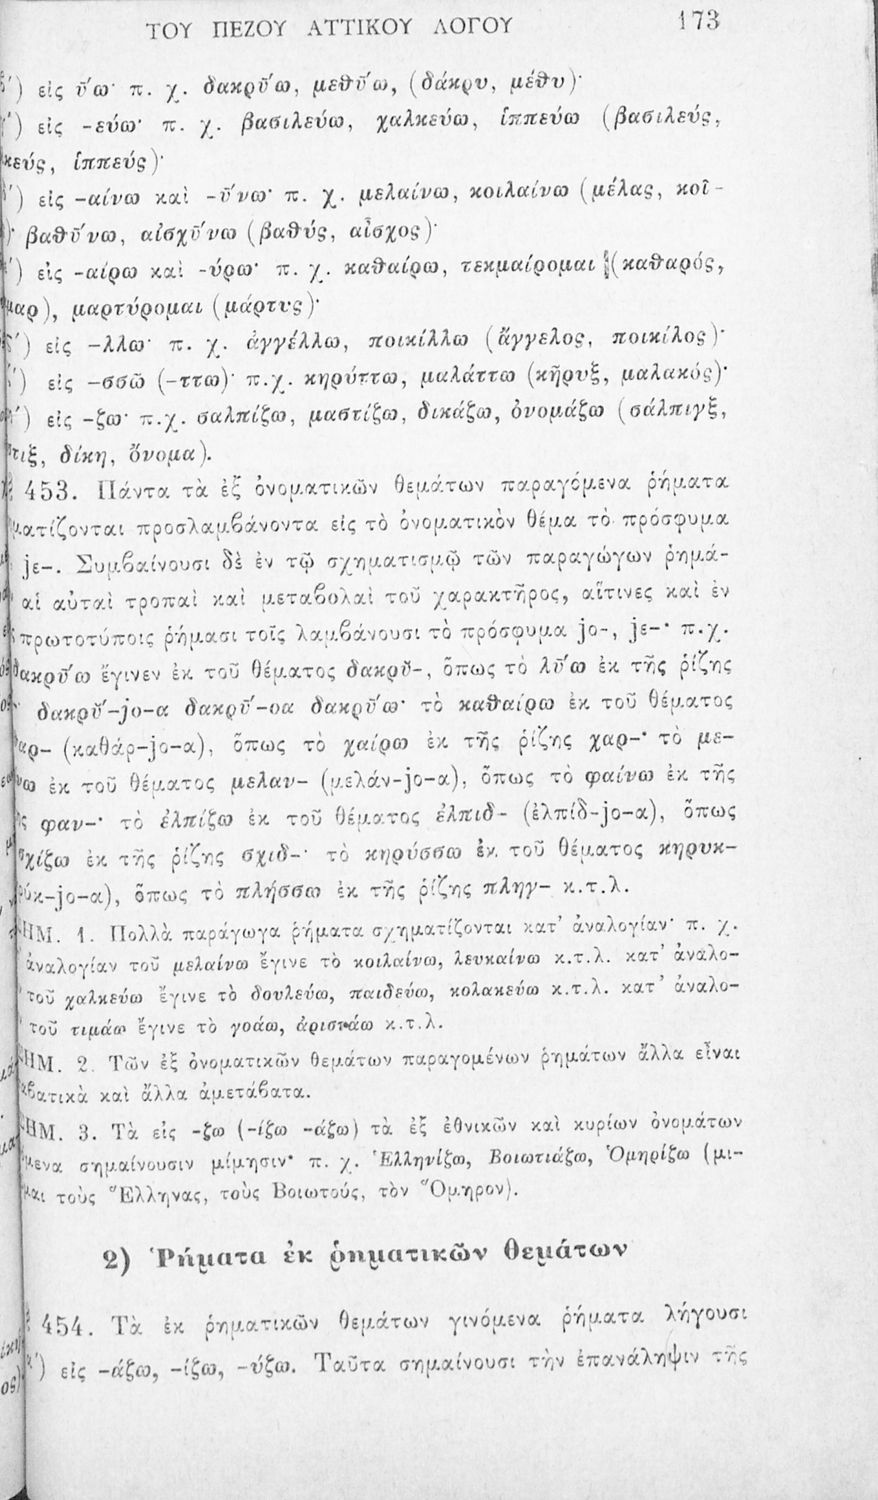 ΤΟΥ ΠΕΖΟΥ ΑΤΤΙΚΟΥ ΛΟΓΟΥ 173
') εἰς ῡ́ω· π. χ. δακρῡ́ω, μεθῡ́ω, (δάκρυ, μέθυ)·
') εἰς -εύω· π. χ. βασιλεύω, χαλκεύω, ἱππεύω (βασιλεύς,
κεύς, ἱππεύς)·
') εἰς -αίνω καὶ -ῡ́νω· π. χ. μελαίνω, κοιλαίνω (μέλας, κοῖ-
)· βαθῡ́νω, αἰσχῡ́νω (βαθύς, αἶσχος)·
') εἰς -αίρω καὶ -ύρω· π. χ. καθαίρω, τεκμαίρομαι (καθαρός,
μαρ), μαρτύρομαι (μάρτυς)·
') εἰς -λλω· π. χ. ἀγγέλλω, ποικίλλω (ἄγγελος, ποικίλος)·
') εἰς -σσῶ (-ττω)· π.χ. κηρύττω, μαλάττω (κῆρυξ, μαλακός)·
') εἰς -ζω· π.χ. σαλπίζω, μαστίζω, δικάζω, ὀνομάζω (σάλπιγξ,
τιξ, δίκη, ὄνομα).
453. Πάντα τὰ ἐξ ὀνοματικῶν θεμάτων παραγόμενα ῥήματα
ματίζονται προσλαμβάνοντα εἰς τὸ ὀνοματικὸν θέμα τὸ πρόσφυμα
jε-. Συμβαίνουσι δὲ ἐν τῷ σχηματισμῷ τῶν παραγώγων ῥημά-
αἱ αὐταὶ τροπαὶ καὶ μεταβολαὶ τοῦ χαρακτῆρος, αἵτινες καὶ ἐν
πρωτοτύποις ῥήμασι τοῖς λαμβάνουσι τὸ πρόσφυμα jο-, jε-· π.χ.
δακρῡ́ω ἔγινεν ἐκ τοῦ θέματος δακρῠ-, ὅπως τὸ λῡ́ω ἐκ τῆς ῥίζης
δακρῠ́-jο-α δακρῡ́-οα δακρῡ́ω· τὸ καθαίρω ἐκ τοῦ θέματος
αρ- (καθάρ-jο-α), ὅπως τὸ χαίρω ἐκ τῆς ῥίζης χαρ-· τὸ με-
νω ἐκ τοῦ θέματος μελαν- (μελάν-jο-α), ὅπως τὸ φαίνω ἐκ τῆς
ς φαν-· τὸ ἐλπίζω ἐκ τοῦ θέματος ἐλπιδ- (ἐλπίδ-jο-α), ὅπως
σχίζω ἐκ τῆς ῥίζης σχιδ-· τὸ κηρύσσω ἐκ τοῦ θέματος κηρυκ-
ύκ-jο-α), ὅπως τὸ πλήσσω ἐκ τῆς ῥίζης πληγ- κ.τ.λ.
ΗΜ. 1. Πολλὰ παράγωγα ῥήματα σχηματίζονται κατ' ἀναλογίαν· π. χ.
ἀναλογίαν τοῦ μελαίνω ἔγινε τὸ κοιλαίνω, λευκαίνω κ.τ.λ. κατ' ἀναλο-
τοῦ χαλκεύω ἔγινε τὸ δουλεύω, παιδεύω, κολακεύω κ.τ.λ. κατ' ἀναλο-
τοῦ τιμάω ἔγινε τὸ γοάω, ἀριστάω κ.τ.λ.
ΗΜ. 2. Τῶν ἐξ ὀνοματικῶν θεμάτων παραγομένων ῥημάτων ἄλλα εἶναι
βατικὰ καὶ ἄλλα ἀμετάβατα.
ΗΜ. 3. Τὰ εἰς -ζω (-ίζω -άζω) τὰ ἐξ ἐθνικῶν καὶ κυρίων ὀνομάτων
μενα σημαίνουσιν μίμησιν· π. χ. Ἑλληνίζω, Βοιωτιάζω, Ὁμηρίζω (μι-
μαι τοὺς Ἕλληνας, τοὺς Βοιωτούς, τὸν Ὅμηρον).
2) Ῥήματα ἐκ ῥηματικῶν θεμάτων
454. Τὰ ἐκ ῥηματικῶν θεμάτων γινόμενα ῥήματα λήγουσι
') εἰς -άζω, -ίζω, -ύζω. Ταῦτα σημαίνουσι τὴν ἐπανάληψιν τῆς